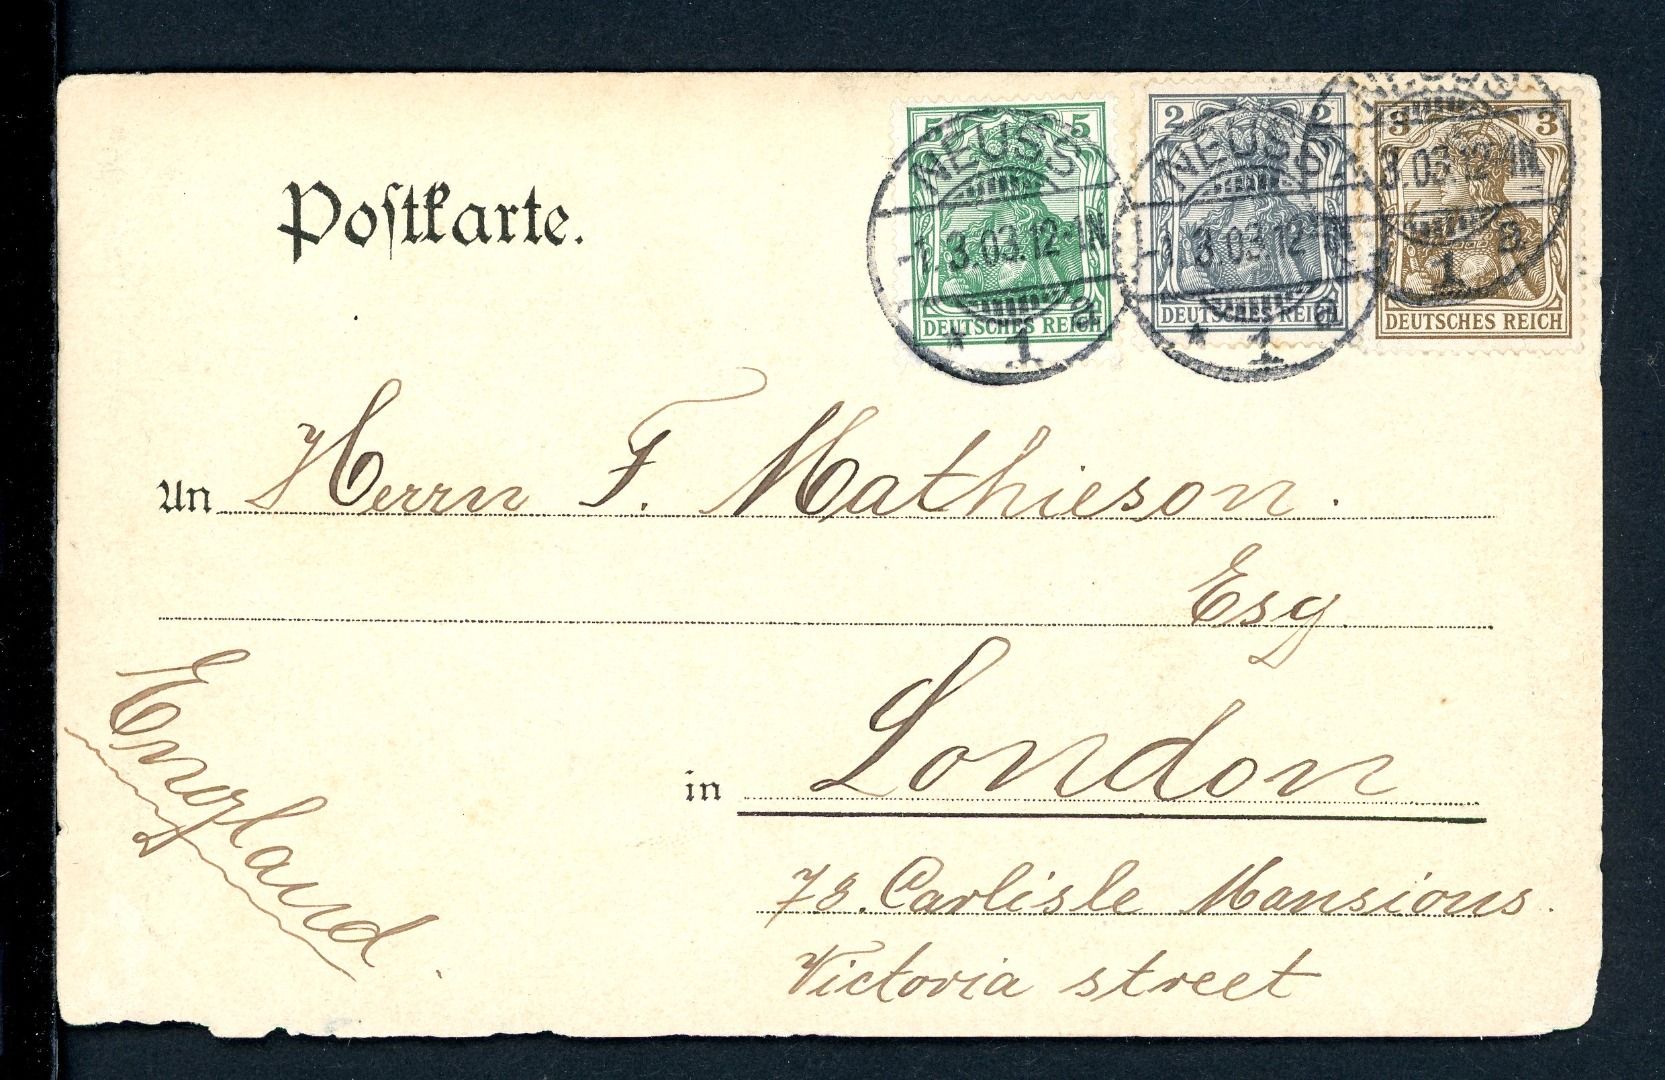 Postkarte.
5 5
NEUSS
-1.3.03.12-1N.
* 1 a
DEUTSCHES REICH
2 2
NEUSS
-1.3.03.12-1N.
* 1 a
DEUTSCHES REICH
3 3
NEUSS
3.03.12-1N.
1 a
DEUTSCHES REICH
An Herrn F. Mathieson.
Esq.
England.
in London
78. Carlisle Mansions.
Victoria street